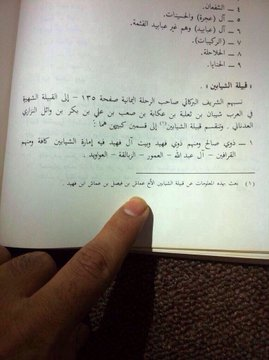 ٤ ــ الشعفان.
٥ ــ آل (عجرة) والحسينات.
٦ ــ آل (عبابيد) وهم غير عبابيد القثمة.
٧ ــ (الركيبات).
٨ ــ الخلاحلة.
٩ ــ الحنايا.
« قبيلة الشيابين » .
نسبهم الشريف البركاتي صاحب الرحلة اليمانية صفحة ١٣٥ – إلى القبيلة الشهيرة
في العرب شيبان بن ثعلبة بن عكابة بن صعب بن علي بن بكر بن وائل النزاري
العدناني . وتنقسم قبيلة الشيابين(١) إلى قسمين كبيرين هما :
١ ــ ذوي صالح ومنهم ذوي فهيد وبيت آل فهيد فيه إمارة الشيابين كافة ومنهم
القرافين – آل عبد الله – العمور – الزيالقة – العواويد .
(١) بعث بهذه المعلومات عن قبيلة الشيابين الأخ عماش بن فيصل بن عماش ابن فهيد .